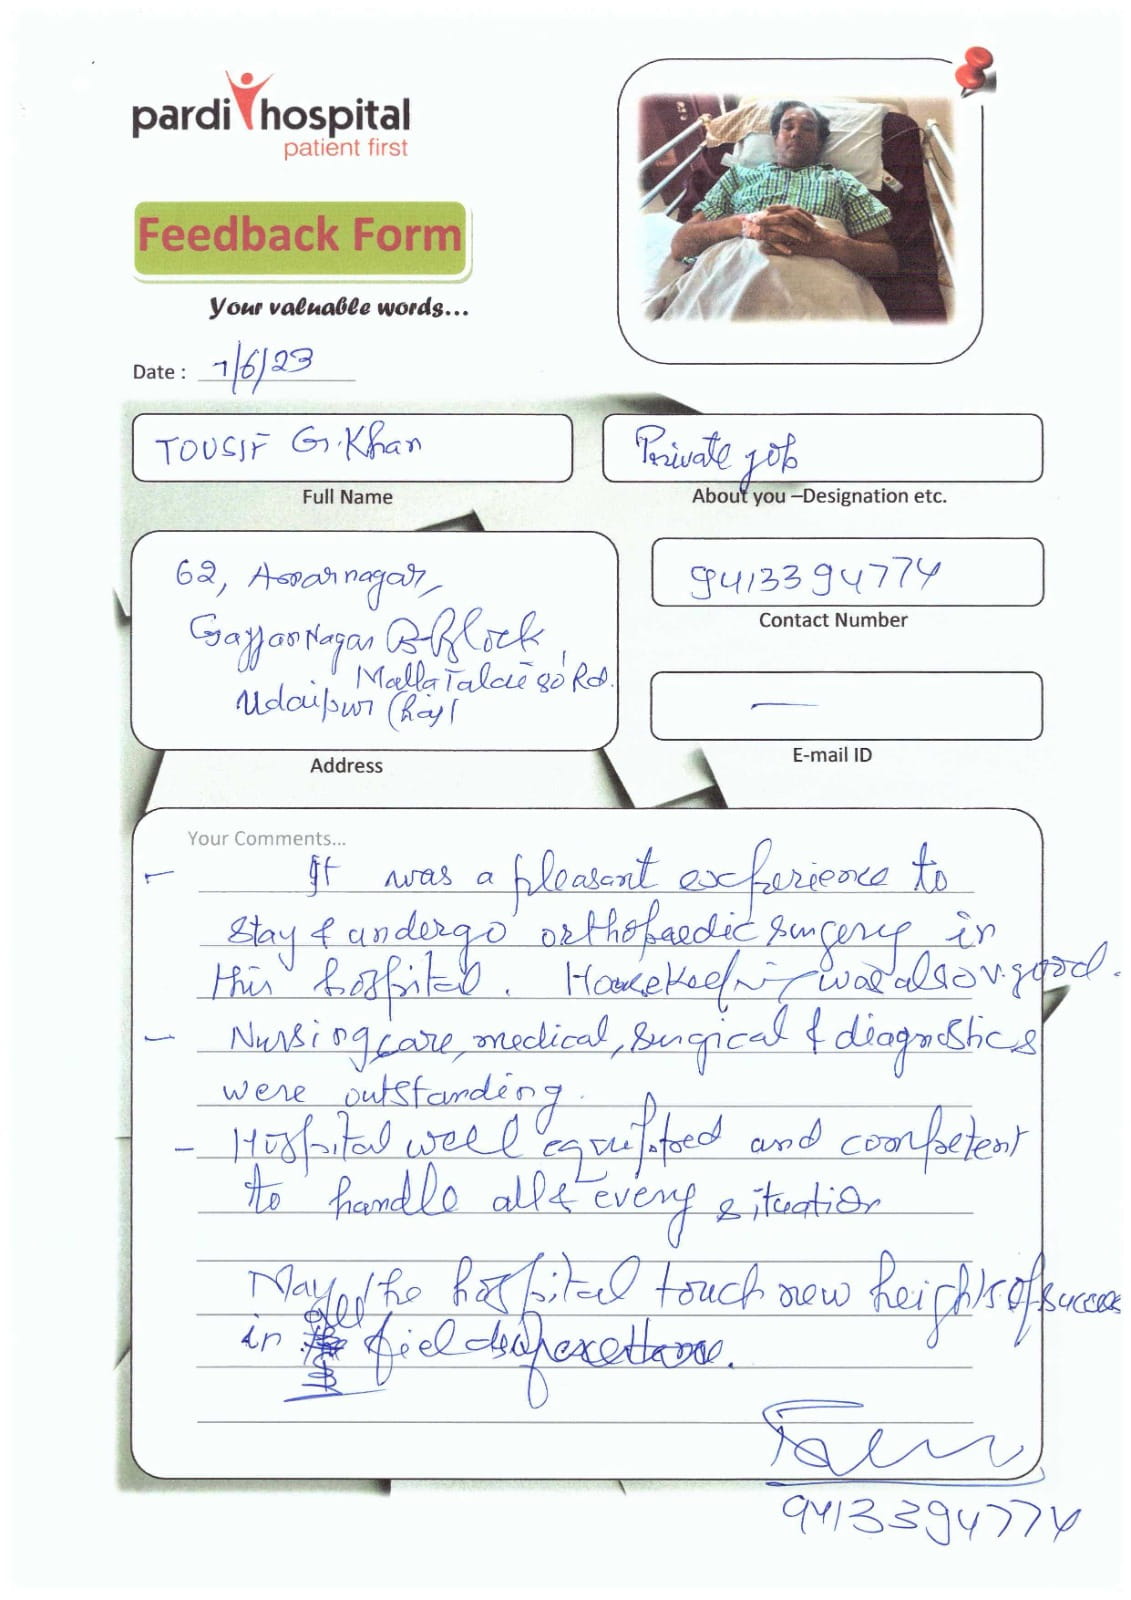 pardi hospital
patient first
Feedback Form
Your valuable words...
Date : 7/6/23
TOUSIF G. Khan
Full Name
Private job
About you –Designation etc.
62,
9413394774
Contact Number
Nagar B-Block,
Malla Talai 80' Rd.
Udaipur (Raj)
Address
—
E-mail ID
Your Comments...
- It was a pleasant experience to
stay & undergo orthopaedic surgery in
this hospital. Housekeeping was also v. good.
- Nursing care, medical, surgical & diagnostics
were outstanding.
- Hospital well equipped and competent
to handle all & every situation
May the hospital touch new heights of success
in all fields of excellence.
9413394774